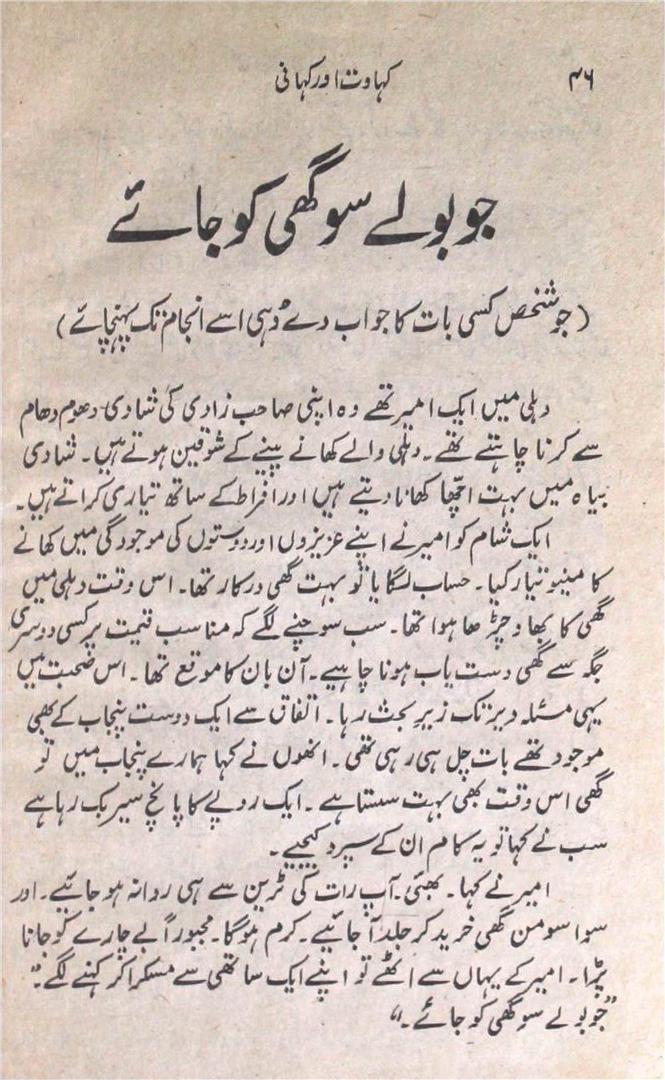 ۴۶
کہاوت اور کہانی
جو بولے سو گھی کو جائے
(جو شخص کسی بات کا جواب دے وہی اسے انجام تک پہنچائے)
دہلی میں ایک امیر تھے وہ اپنی صاحب زادی کی شادی دھوم دھام
سے کرنا چاہتے تھے۔ دہلی والے کھانے پینے کے شوقین ہوتے ہیں۔ شادی
بیاہ میں بہت اچھا کھانا دیتے ہیں اور افراط کے ساتھ تیاری کراتے ہیں۔
ایک شام کو امیر نے اپنے عزیزوں اور دوستوں کی موجودگی میں کھانے
کا مینو تیار کیا۔ حساب لگایا تو بہت گھی درکار تھا۔ اس وقت دہلی میں
گھی کا بھاؤ چڑھا ہوا تھا۔ سب سوچنے لگے کہ مناسب قیمت پر کسی دوسری
جگہ سے گھی دست یاب ہونا چاہیے۔ آن بان کا موقع تھا۔ اس صحبت میں
یہی مسئلہ دیر تک زیر بحث رہا۔ اتفاق سے ایک دوست پنجاب کے بھی
موجود تھے بات چل ہی رہی تھی۔ انھوں نے کہا ہمارے پنجاب میں تو
گھی اس وقت بھی بہت سستا ہے۔ ایک روپے کا پانچ سیر بک رہا ہے
سب نے کہا تو یہ کام ان کے سپرد کیجیے۔
امیر نے کہا۔ بھئی۔ آپ رات کی ٹرین سے ہی روانہ ہو جائیے۔ اور
سوا سو من گھی خرید کر جلد آ جائیے۔ کرم ہوگا۔ مجبوراً بے چارے کو جانا
پڑا۔ امیر کے یہاں سے اٹھے تو اپنے ایک ساتھی سے مسکرا کر کہنے لگے۔
"جو بولے سو گھی کو جائے۔"